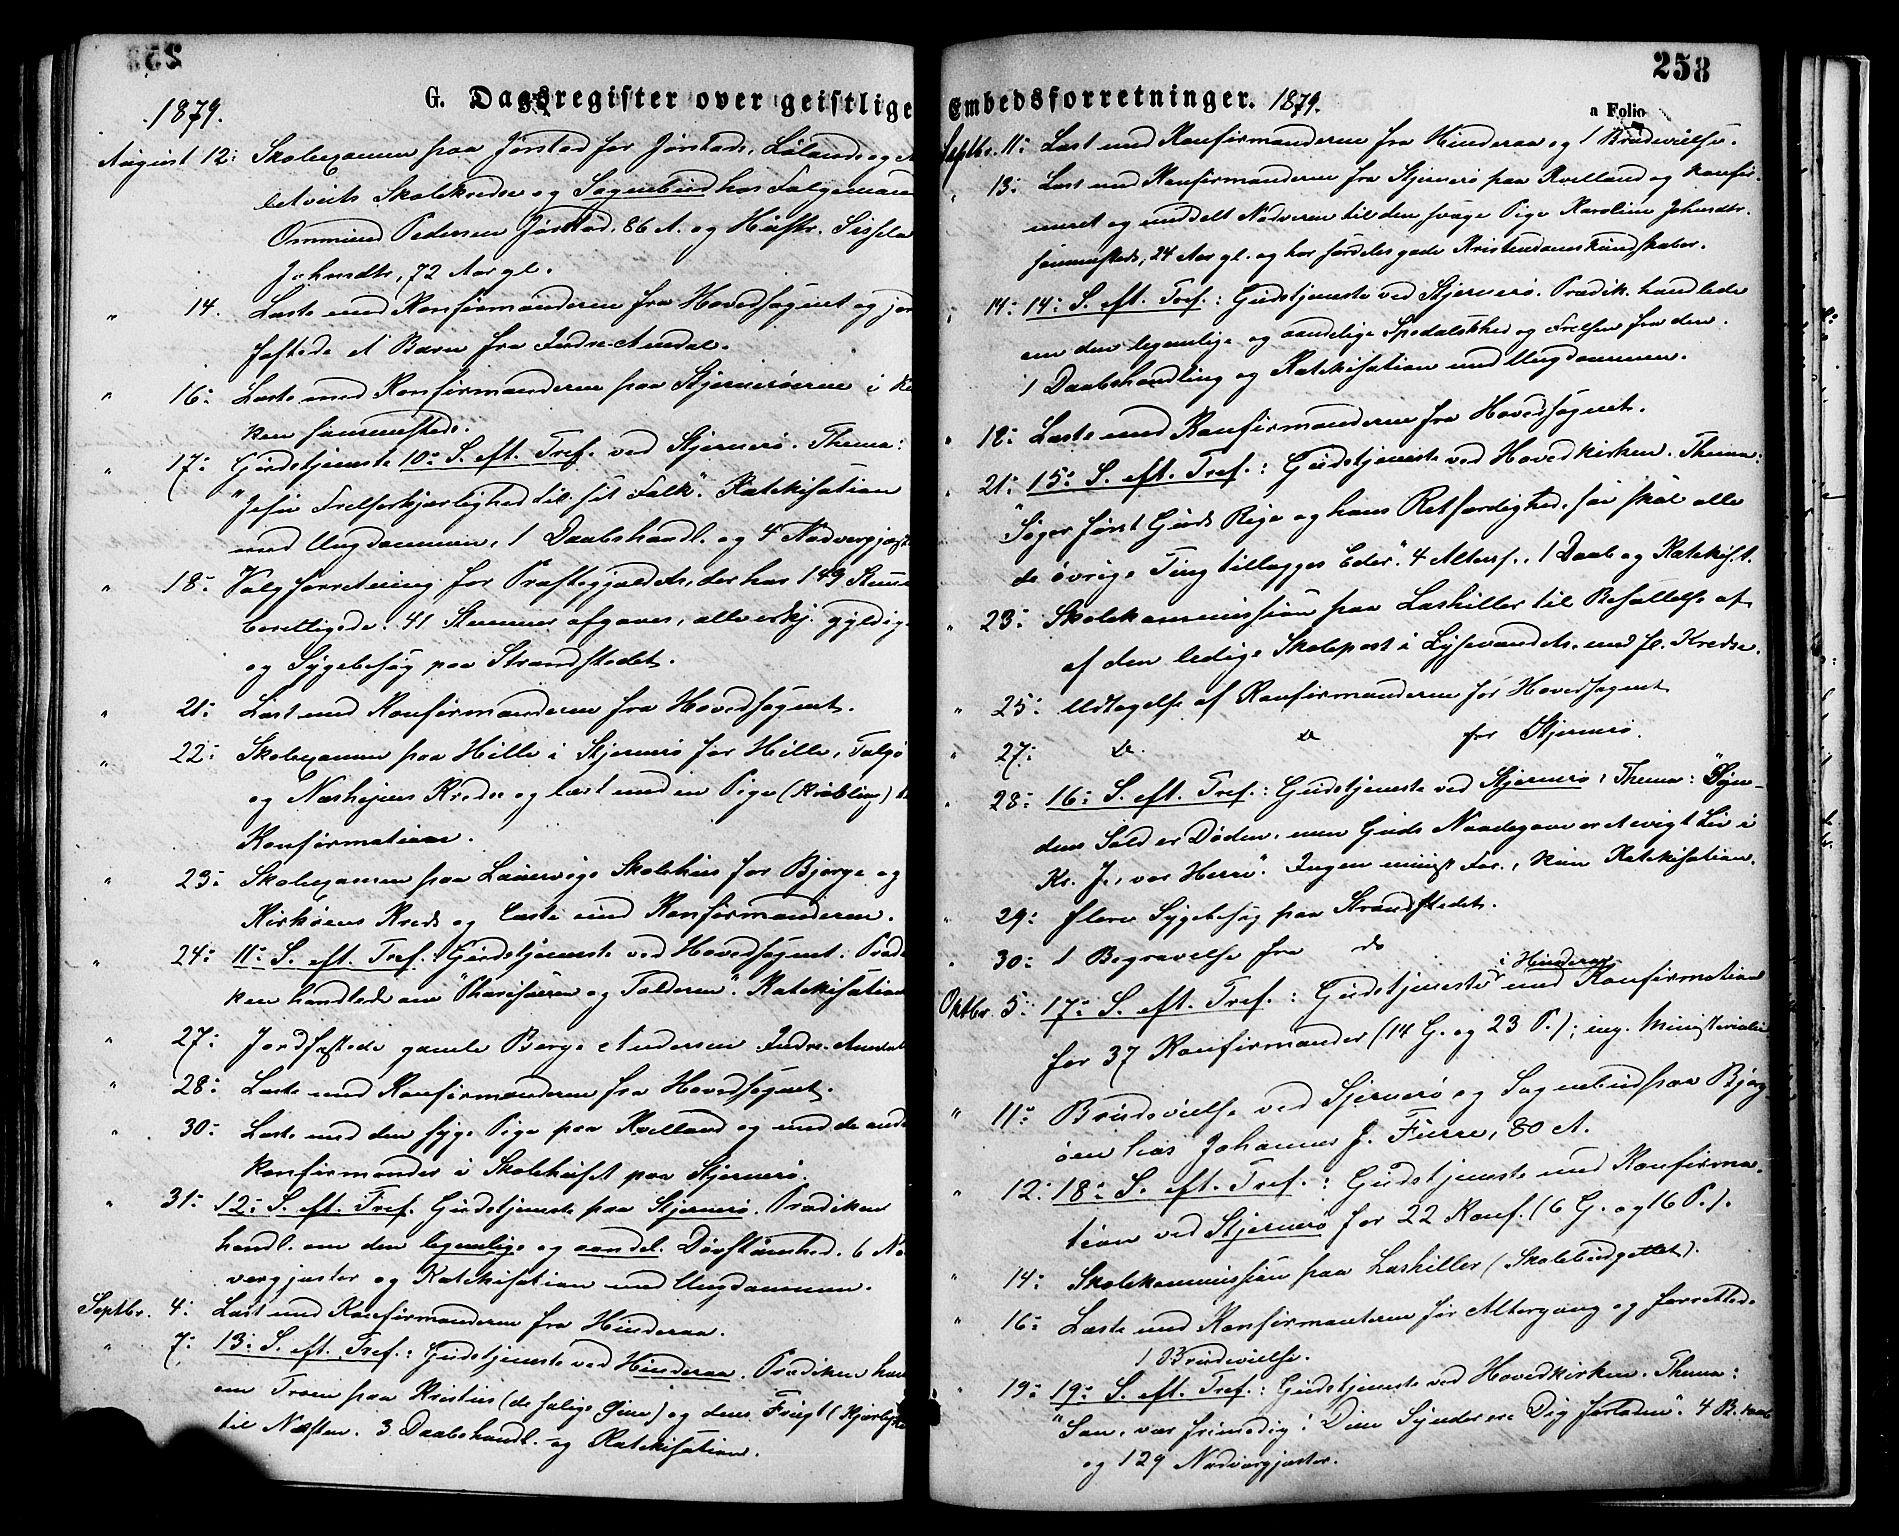 258
G. Dagsregister over geistlige
1879.
August 12: Skoleexamen paa Jørstad for Jørstads, Lølands og
Skolekredse og Sognebud hos Folgemand
Ommund Pedersen Jørstad, 86 A. og Hustr. Sissela
Johnsdtr, 72 Aar gl.
" 14. Læste med Konfirmanderne fra Hovedsognet og jord
fæstede et Barn fra Indre Amdal.
" 16: Læste med Konfirmanderne paa Stjernerøerne i Kir
ken sammesteds.
" 17: Gudstjeneste 10: S. eft. Tref. ved Stjernerø. Thema:
"Jesu Frelserkjærlighed til sit Folk". Katekisation
med Ungdommen, 1 Daabshandl. og 4 Nadvergjæst
" 18: Valgforretning for Præstegjældet, der har 149 Stemme
berettigede. 41 Stemmer afgaves, alle erkj. gyldig
og Sygebesøg paa Strandstedet.
" 21: Læst med Konfirmanderne fra Hovedsognet.
" 22: Skoleexamen paa Hille i Stjernerø for Hille, Talgø
og Næshejens Kreds og læst med en Pige (Krøbling) til
Konfirmation.
" 23: Skoleexamen paa Lauervigs Skolehus for Bjørge og
Kirkøens Kreds og læste med Konfirmanderne.
" 24: 11: S. eft. Tref. Gudstjeneste ved Hovedsognet. Prædi
ken handlede om "Pharisæeren og Tolderen". Katekisation
" 27: Jordfæstede gamle Børge Andersen Indre-Amdal
" 28: Læste med Konfirmanderne fra Hovedsognet.
" 30: Læste med den syge Pige paa Kvelland og med de andre
Konfirmander i Skolehuset paa Stjernerø.
" 31: 12: S. eft. Tref. Gudstjeneste paa Stjernerø. Prædiken
handl. om den legemlige og aandel. Døvstumhed. 6 Na
vergjæster og Katekisation med Ungdommen.
Septbr. 4: Læst med Konfirmanderne fra Hinderaa.
" 7: 13: S. eft. Tref.: Gudstjeneste ved Hinderaa. Prædiken han
om Troen paa Kristus (de salige Øine) og dens Frugt (Kjærlighed
til Næsten. 3 Daabshandl. og Katekisation.
258
Embedsforretninger. 1879.
a Folio
Septbr. 11: Læst med Konfirmanderne fra Hinderaa og 1 Brudevielse.
" 13: Læst med Konfirmanderne fra Stjernerø paa Kvelland og konfir-
meret og meddelt Nadveren til den svage Pige Karoline Johnsdtr.
sammesteds, 24 Aar gl. og har særdeles gode Kristendomskundskaber.
" 14: 14: S. eft. Tref.: Gudstjeneste ved Stjernerø. Prædik. handlede
om den legemlige og aandelige Spedalskhed og Frelsen fra den.
1 Daabshandling og Katekisation med Ungdommen.
" 18: Læste med Konfirmanderne fra Hovedsognet.
" 21: 15: S. eft. Tref.: Gudstjeneste ved Hovedkirken. Thema:
"Søger først Guds Rige og hans Retfærdighed, saa skal alle
de øvrige Ting tillægges Eder". 4 Altersf., 1 Daab og Katekis.
" 23: Skolekommission paa Laskiller til Besættelse af
af den ledige Skolepost i Lysevandets med fl. Kredse.
" 25: Udtagelse af Konfirmanderne for Hovedsognet
" 27: Do. Do for Stjernerø.
" 28: 16: S. eft. Tref.: Gudstjeneste ved Stjernerø. Thema: "Syn-
dens Sold er Døden, men Guds Naadegave er et evigt Liv i
Kr. J., vor Herre". Ingen minist. For., kun Katekisation.
" 29: flere Sygebesøg paa Strandstedet.
" 30: 1 Begravelse fra do
Oktbr. 5: 17: S. eft. Tref.: Gudstjeneste i Hinderaa med Konfirmation
for 37 Konfirmander (14 G. og 23 P.); ing. Ministerialia
" 11: Brudevielse ved Stjernerø og Sognebud paa Bjerg-
øen hos Johannes J. Furre, 80 A.
" 12: 18: S. eft. Tref.: Gudstjeneste med Konfirma-
tion ved Stjernerø for 22 Konf. (6 G. og 16 P.).
" 14: Skolekommission paa Laskiller (Skolebudgettet).
" 16: Læste med Konfirmanterne før Altergang og forrettede
1 Brudevielse.
" 19: 19: S. eft. Tref.: Gudstjeneste ved Hovedkirken. Thema:
"Søn, vær frimodig! Dine Synder ere Dig forladne". 4 B. Daab
og 129 Nadvergjæster.